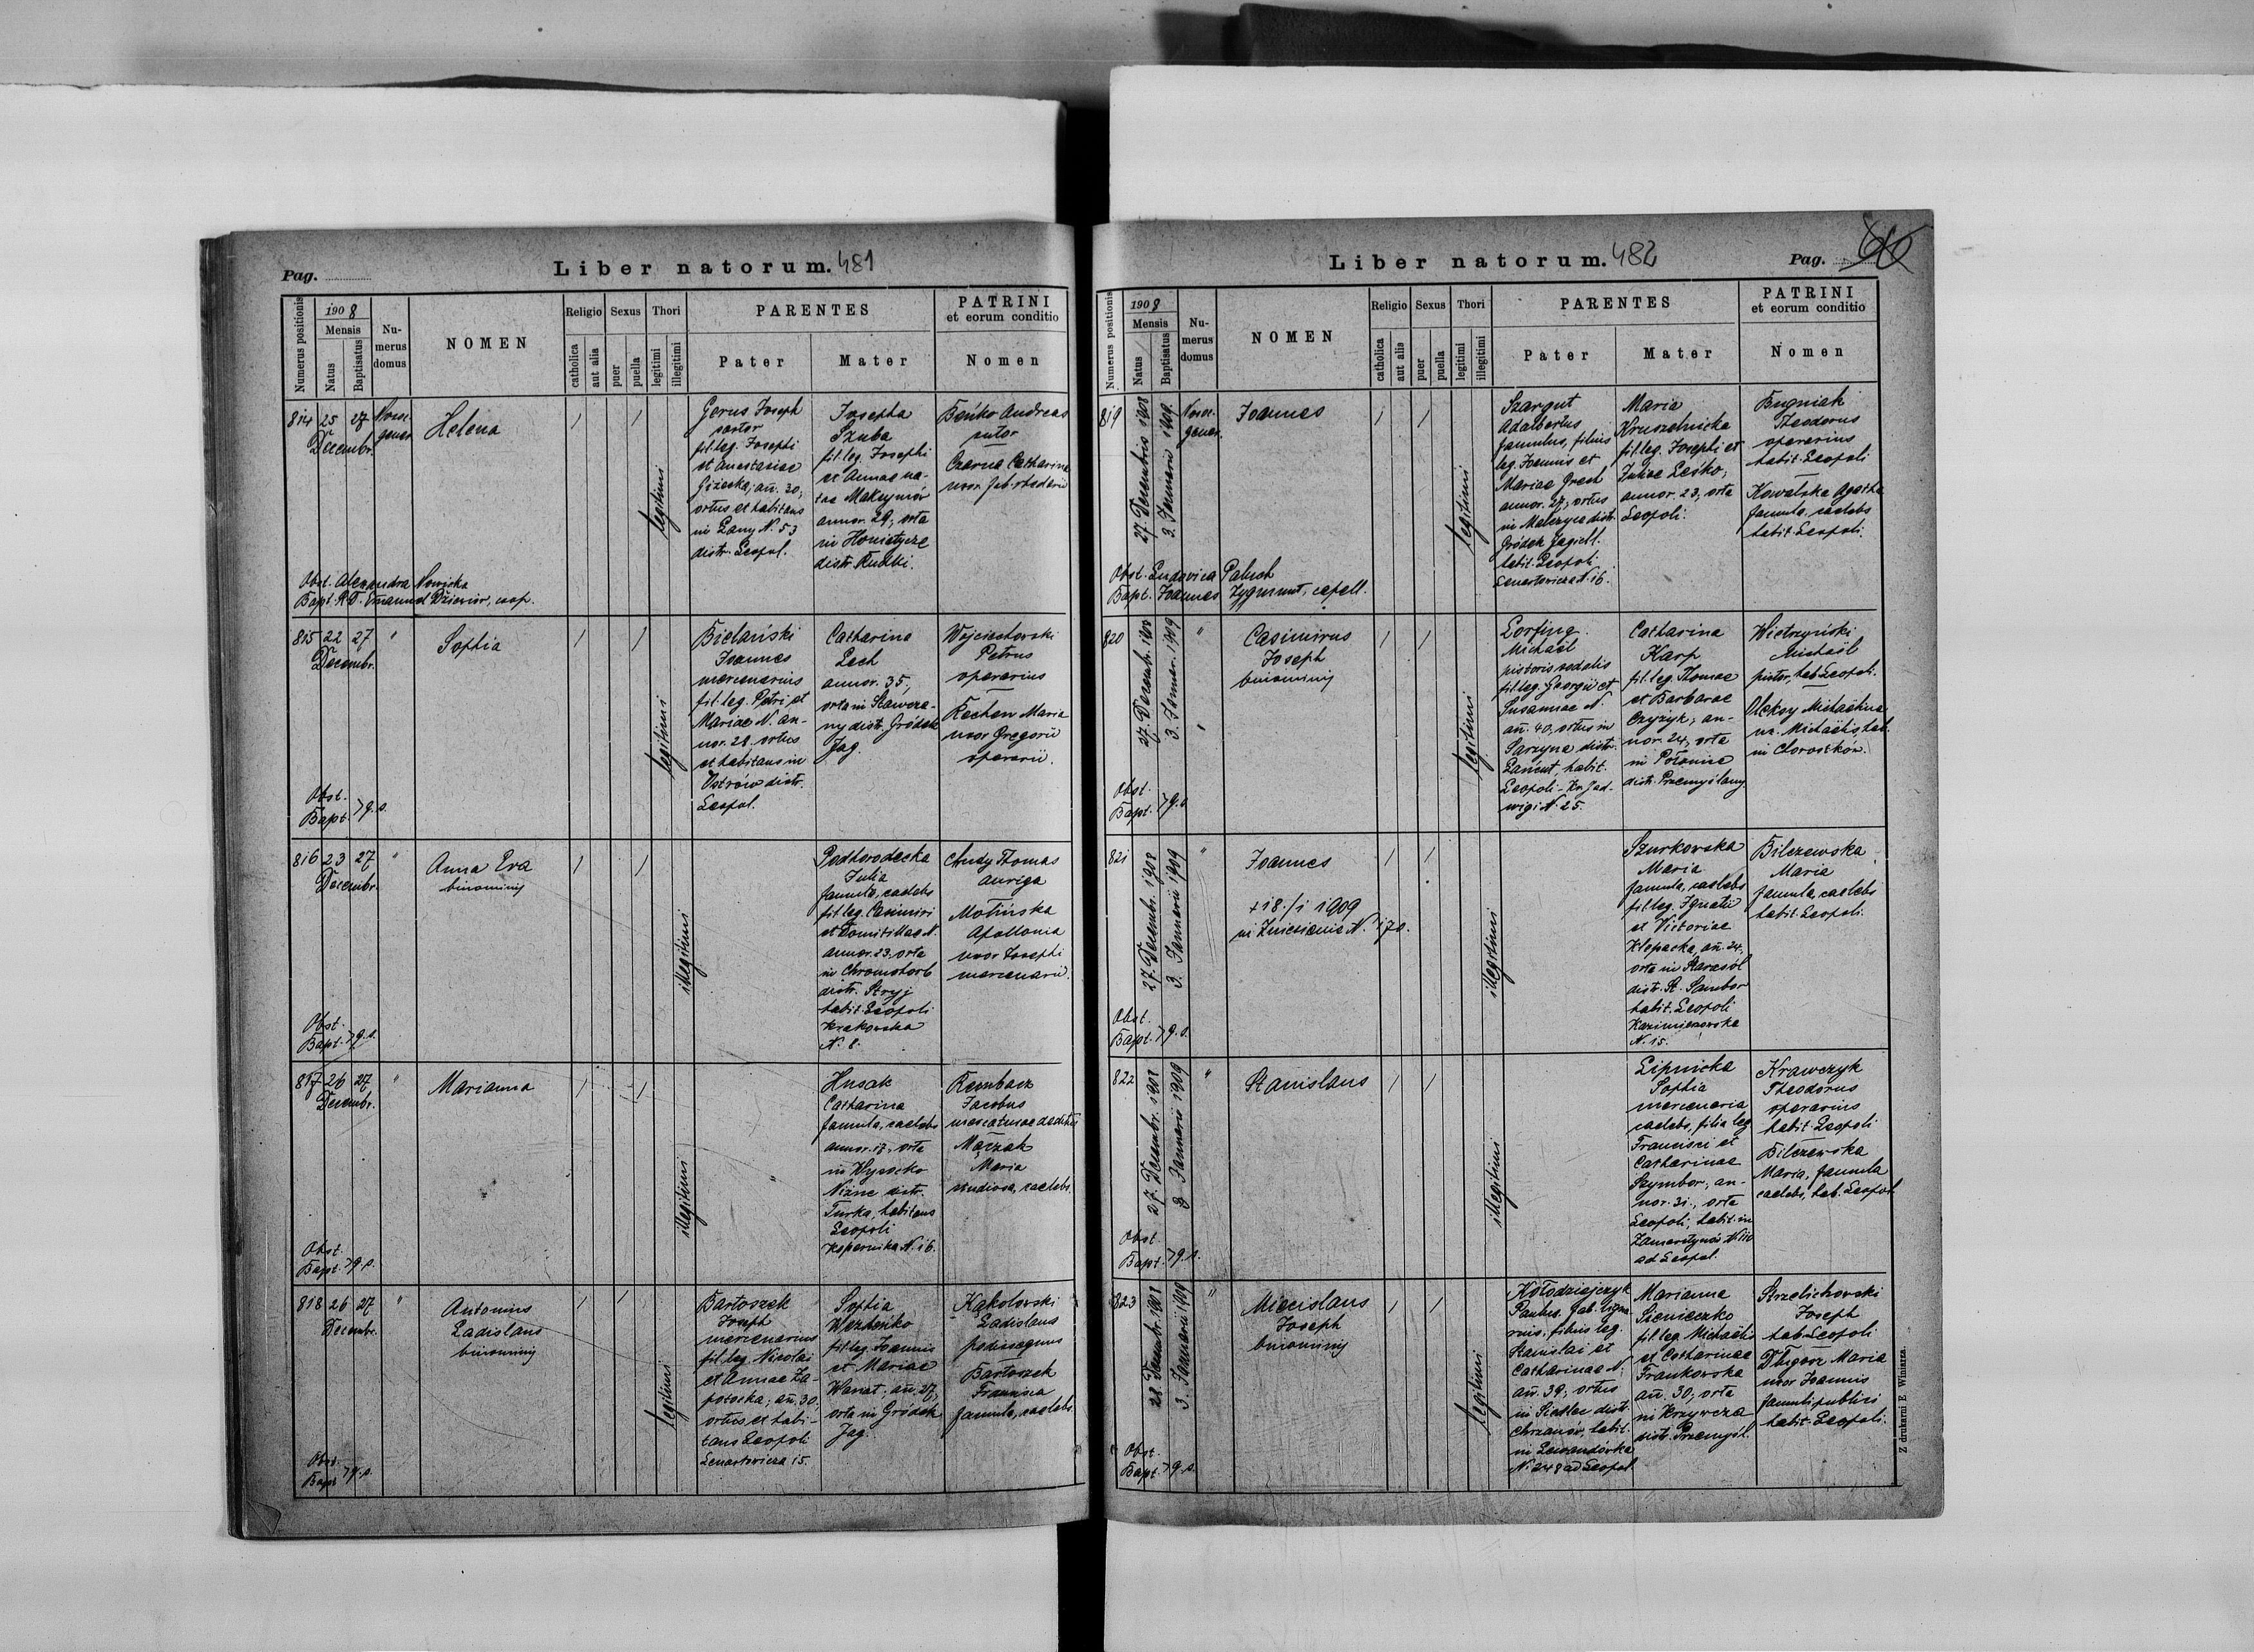 Pag.
Liber natorum. 481
Numerus positionis
1908
Mensis
Natus
Baptisatus
Nu-
merus
domus
NOMEN
Religio
catholica
aut alia
Sexus
puer
puella
Thori
legitimi
illegitimi
PARENTES
Pater
Mater
PATRINI
et eorum conditio
Nomen
814 25 27
Decembr.
Helena
legitimi
Gorus Joseph
sartor
fil. leg. Josephi
et Anastasiae
Gizecka, añ. 30,
ortus et habitans
in Lany N. 53
distr. Leopol.
Josepha
Szuba
fil. leg. Josephi
et Annae na-
tae Maksymów
annor. 29, orta
in Honiatycze
distr. Rudki.
Beńko Andreas
sutor
Czarna Catharina
uxor fab. rhedarii
Obst. Alexandra Nowicka
Bapt. R.D. Emanuel Dziewior, coop.
815 22 27 "
Decembr.
Sophia
legitimi
Bielański
Joannes
mercenarius
fil. leg. Petri et
Mariae N. an-
nor. 28. ortus
et habitans in
Ostrów distr.
Leopol.
Catharina
Lech
annor. 35,
orta in Stawcza-
ny distr. Gródek
Jag.
Wojciechowski
Petrus
operarius
Kechan Maria
uxor Gregorii
operarii.
Obst.
Bapt. > q.s.
816 23 27 "
Decembr.
Anna Eva
binominis
illegitimi
Podhorodecka
Julia
famula, caelebs
fil. leg. Casimiri
et Domitillae N.
annor. 23, orta
in Chromohorb
distr. Stryj
habit. Leopoli
Krakowska
N. 8.
Andy Thomas
auriga
Molińska
Apollonia
uxor Josephi
mercenarii.
Obst.
Bapt. > q.s.
817 26 27 "
Decembr.
Marianna
illegitimi
"
Husak
Catharina
famula, caelebs
annor. 17, orta
in Wysocko
Niżne distr.
Turka, habitans
Leopoli
Kopernika N. 16.
Jacobus
mercaturae deditus
Maria
studiosa, caelebs.
Obst.
Bapt. > q.s.
818 26 27 "
Decembr.
Antonius
Ladislaus
binominis
legitimi
Bartoszek
Joseph
mercenarius
fil. leg. Nicolai
et Annae Za-
potocka, añ. 30,
ortus et habi-
tans Leopoli
Lenartowicza 15.
Sophia
fil. leg. Joannis
et Mariae
Wariat, añ. 27,
orta in Gródek
Jag.
Kąkolowski
Ladislaus
pedissequus
Bartoszek
Francisca
famula, caelebs.
Obst.
Bapt. > q.s.
Liber natorum. 482
Pag.
Numerus positionis
1908
Mensis
Natus
Baptisatus
Nu-
merus
domus
NOMEN
Religio
catholica
aut alia
Sexus
puer
puella
Thori
legitimi
illegitimi
PARENTES
Pater
Mater
PATRINI
et eorum conditio
Nomen
819
27. Decembris 1908
3. Januarii 1909
Joannes
legitimi
Szargut
Adalbertus
famulus, filius
leg. Joannis et
Mariae Grech
annor. 27, ortus
in Malczyce distr.
Gródek Jagiell.
habit. Leopoli
Lenartowicza N. 16.
Maria
Kruszelnicka
fil. leg. Josephi et
Juliae Leśko,
annor. 23, orta
Leopoli.
Bugniak
Theodorus
operarius
habit. Leopoli
Kowalska Agatha
famula, caelebs
habit. Leopoli.
Obst. Ludovica Paluch
Bapt. Joannes Zygmunt, capell.
820
27. Decembr. 1908
3. Januar. 1909
"
Casimirus
Joseph
binominis
legitimi
Lorfing
Michaël
pistoris sodalis
fil. leg. Georgii et
Susannae N.
añ. 40, ortus in
Sarzyna distr.
Łańcut, habit.
Leopoli - Kr. Jad-
wigi N. 25.
Catharina
Karp
fil. leg. Thomae
et Barbarae
Czyżyk, an-
nor. 24, orta
in Połonice
distr. Przemyślany
Wietrzyński
Michaël
pistor, hab. Leopoli.
Oleksy Michaëlina
ux. Michaëlis, hab.
in Chorostków.
Obst.
Bapt. > q.s.
821
27. Decembr. 1908
3. Januarii 1909
"
Joannes
+ 18./1 1909
in Zniesienie N. 170.
illegitimi
Szurkowska
Maria
famula, caelebs
fil. leg. Ignatii
et Victoriae
Klepacka, añ. 24,
orta in Starasól
distr. St. Sambor
habit. Leopoli
Kazimierzowska
N. 15.
Bilczewska
Maria
famula, caelebs
habit. Leopoli.
Obst.
Bapt. > q.s.
822
27. Decembr. 1908
3 Januarii 1909
"
Stanislaus
illegitimi
Lipnicka
Sophia
mercenaria
caelebs, filia leg.
Francisci et
Catharinae
Szymbor, an-
nor. 31., orta
Leopoli, habit. in
Zamarstynów N. 110
ad Leopol.
Krawczyk
Theodorus
operarius
habit. Leopoli
Bilczewska
Maria, famula
caelebs, hab. Leopol.
Obst.
Bapt. > q.s.
823
28. Decembr. 1908
3. Januarii 1909
"
Miecislaus
Joseph
binominis
legitimi
Kołodziejczyk
Paulus, fab. ligna-
rius, filius leg.
Stanislai et
Catharinae N.
añ. 39, ortus
in Siedlec distr.
Chrzanów, habit.
in Lewandówka
N. 248 ad Leopol.
Marianna
Sienieczko
fil. leg. Michaëlis
et Catharinae
Frankowska
añ. 30, orta
in Krzywcza
distr. Przemyśl.
Strzelichowski
Joseph
hab. Leopoli
Maria
uxor Joannis
famuli publici
habit. Leopoli.
Obst.
Bapt. > q.s.
Z drukarni E. Winiarza.